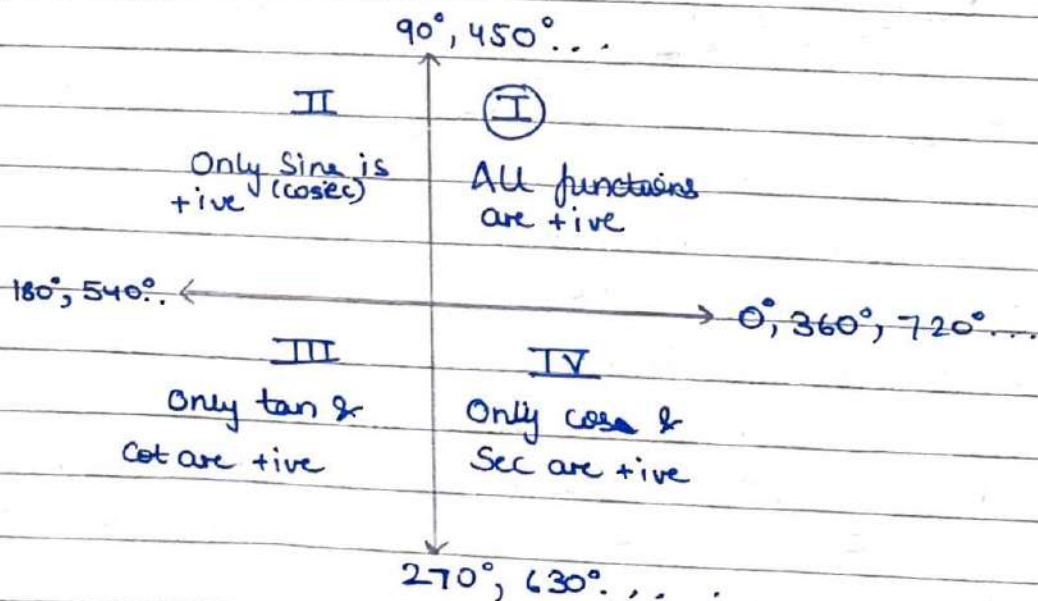 90°, 450°...
II
I
Only Sine is
+ive (cosec)
All functions
are +ive
180°, 540°..
0°, 360°, 720°....
III
IV
Only tan &
Cot are +ive
Only cos &
Sec are +ive
270°, 630°. . . .